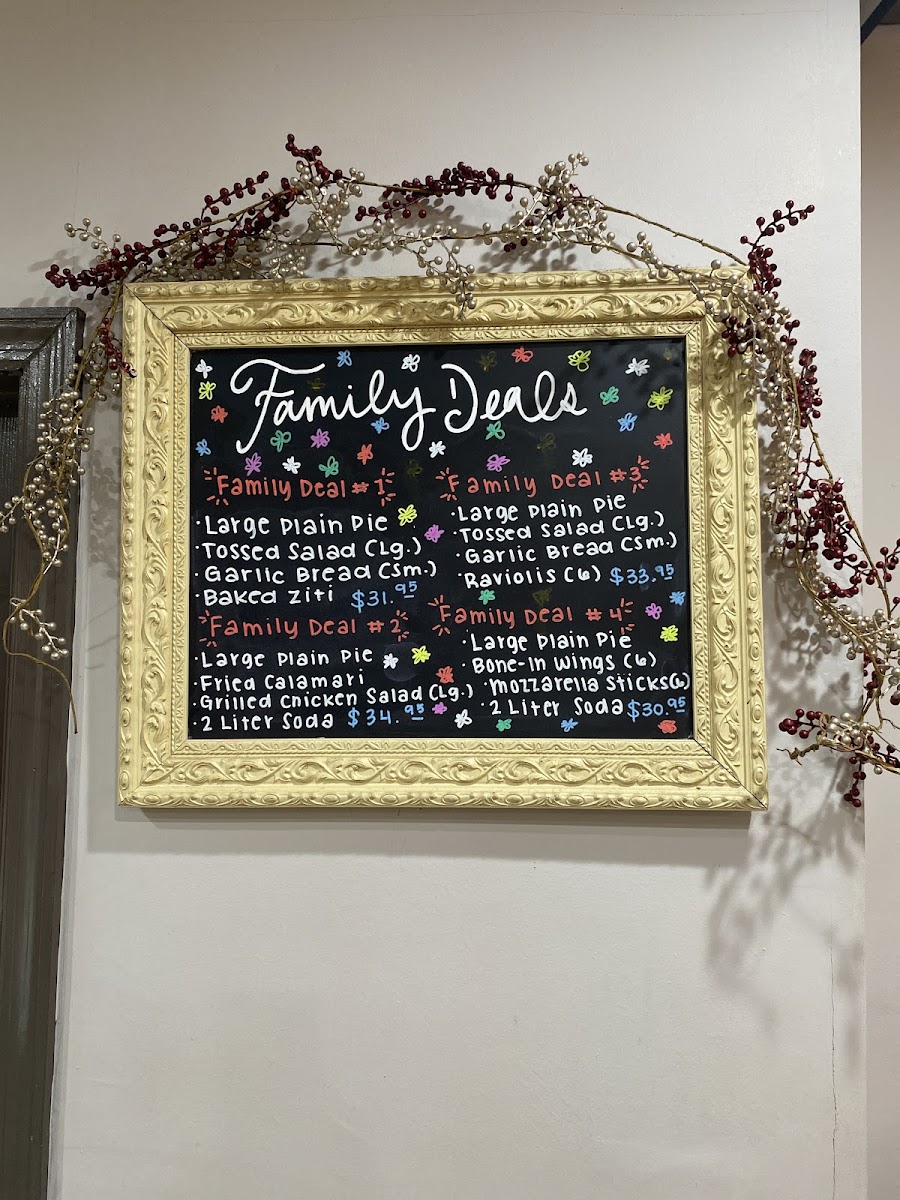 Family Deals
Family Deal #1
·Large Plain Pie
·Tossed Salad (Lg.)
·Garlic Bread (Sm.)
·Baked Ziti $31.95
Family Deal #2
·Large Plain Pie
·Fried Calamari
·Grilled Chicken Salad (Lg.)
·2 Liter Soda $34.95
Family Deal #3
·Large Plain Pie
·Tossed Salad (Lg.)
·Garlic Bread (Sm.)
·Raviolis (6) $33.95
Family Deal #4
·Large Plain Pie
·Bone-In Wings (6)
·Mozzarella Sticks (6)
·2 Liter Soda $30.95